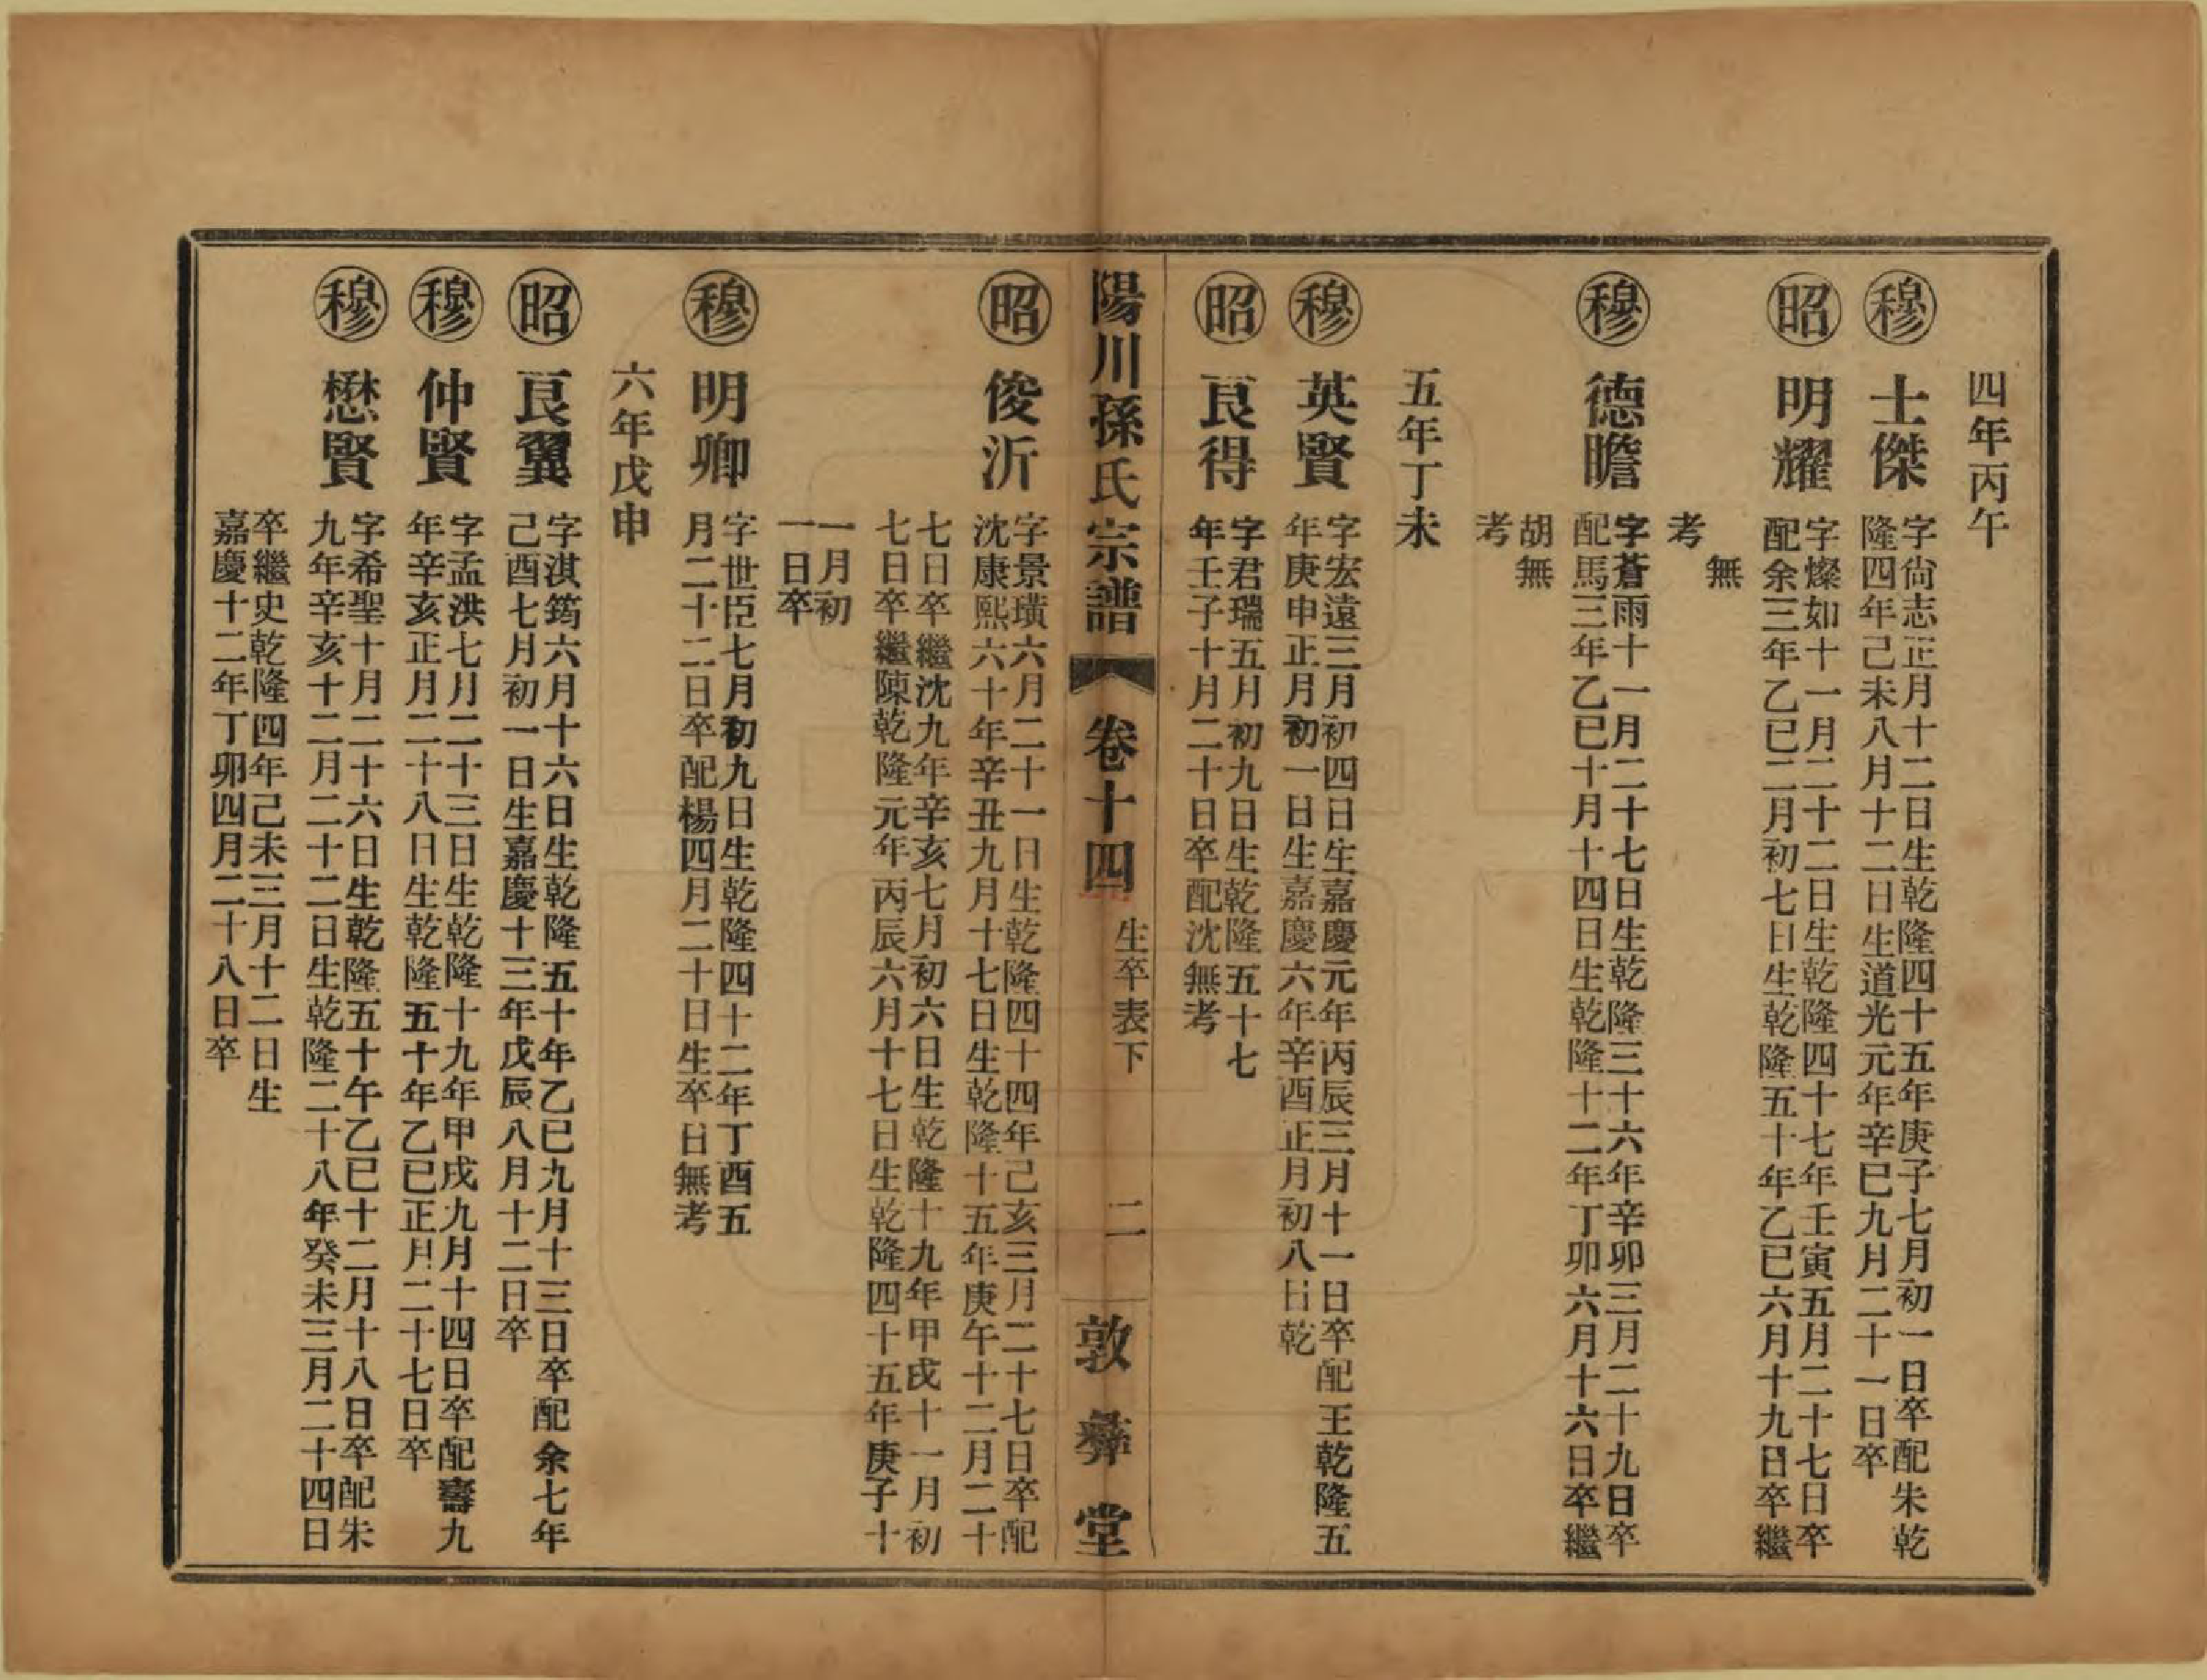 四年丙午
㊀穆 士傑
字尙志正月十二日生乾隆四十五年庚子七月初一日卒配朱乾
隆四年己未八月十二日生道光元年辛巳九月二十一日卒
昭 明耀
字燦如十一月二十二日生乾隆四十七年壬寅五月二十七日卒
配余三年乙巳二月初七日生乾隆五十年乙巳六月十九日卒繼
無
考
穆 德瞻
字蒼雨十一月二十七日生乾隆三十六年辛卯三月二十九日卒
配馬三年乙巳十月十四日生乾隆十二年丁卯六月十六日卒繼
胡無
考
五年丁未
穆 英賢
字宏遠三月初四日生嘉慶元年丙辰三月十一日卒配王乾隆五
年庚申正月初一日生嘉慶六年辛酉正月初八日乾
昭 良得
字君瑞五月初九日生乾隆五十七
年壬子十月二十日卒配沈無考
陽川孫氏宗譜 卷十四 生卒表下 二 敦彝堂
昭 俊沂
字景璜六月二十一日生乾隆四十四年己亥三月二十七日卒配
沈康熙六十年辛丑九月十七日生乾隆十五年庚午十二月二十
七日卒繼沈九年辛亥七月初六日生乾隆十九年甲戌十一月初
七日卒繼陳乾隆元年丙辰六月十七日生乾隆四十五年庚子十
一月初
一日卒
穆 明卿
字世臣七月初九日生乾隆四十二年丁酉五
月二十二日卒配楊四月二十日生卒日無考
六年戊申
昭 良翼
字淇筠六月十六日生乾隆五十年乙巳九月十三日卒配余七年
己酉七月初一日生嘉慶十三年戊辰八月十二日卒
穆 仲賢
字孟洪七月二十三日生乾隆十九年甲戌九月十四日卒配壽九
年辛亥正月二十八日生乾隆五十年乙巳正月二十七日卒
穆 懋賢
字希聖十月二十六日生乾隆五十午乙巳十二月十八日卒配朱
九年辛亥十二月二十二日生乾隆二十八年癸未三月二十四日
卒繼史乾隆四年己未三月十二日生
嘉慶十二年丁卯四月二十八日卒